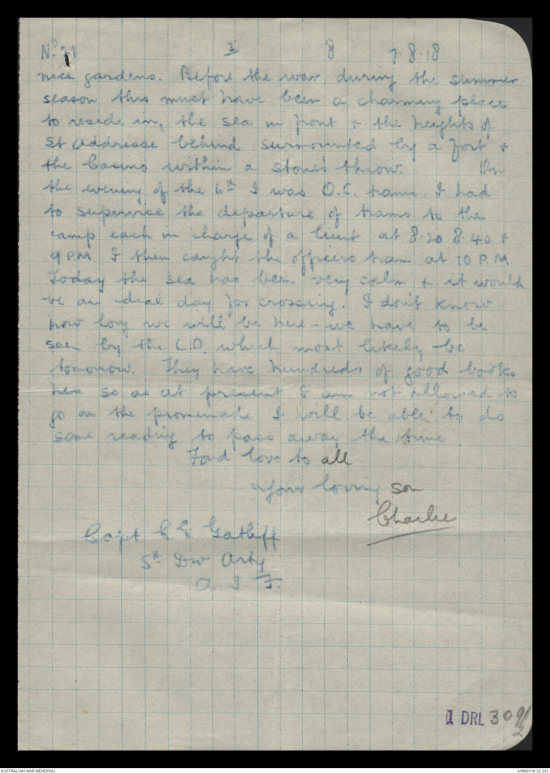 No 71 3 8 7.8.18
nice gardens. Before the war during the summer
season this must have been a charming place
to reside in, the sea in front & the heights of
St Addresse behind surmounted by a fort &
the Casino within a stone's throw. On
the evening of the 6th I was O.C. trams. I had
to supervise the departure of trams to the
camp each in charge of a lieut at 8.20 8.40 &
9 P.M. I then caught the officers tram at 10 P.M.
Today the sea has been very calm & it would
be an ideal day for crossing. I don't know
how long we will be here - we have to be
seen by the C.O. which most likely be
tomorrow. They have hundreds of good books
here so as at present I am not allowed to
go on the promenade I will be able to do
some reading to pass away the time
Fond love to all
Your loving son
Charlie
Capt C E Gatliff
5th Div Arty
A I F.
1 DRL 309/2
AUSTRALIAN WAR MEMORIAL